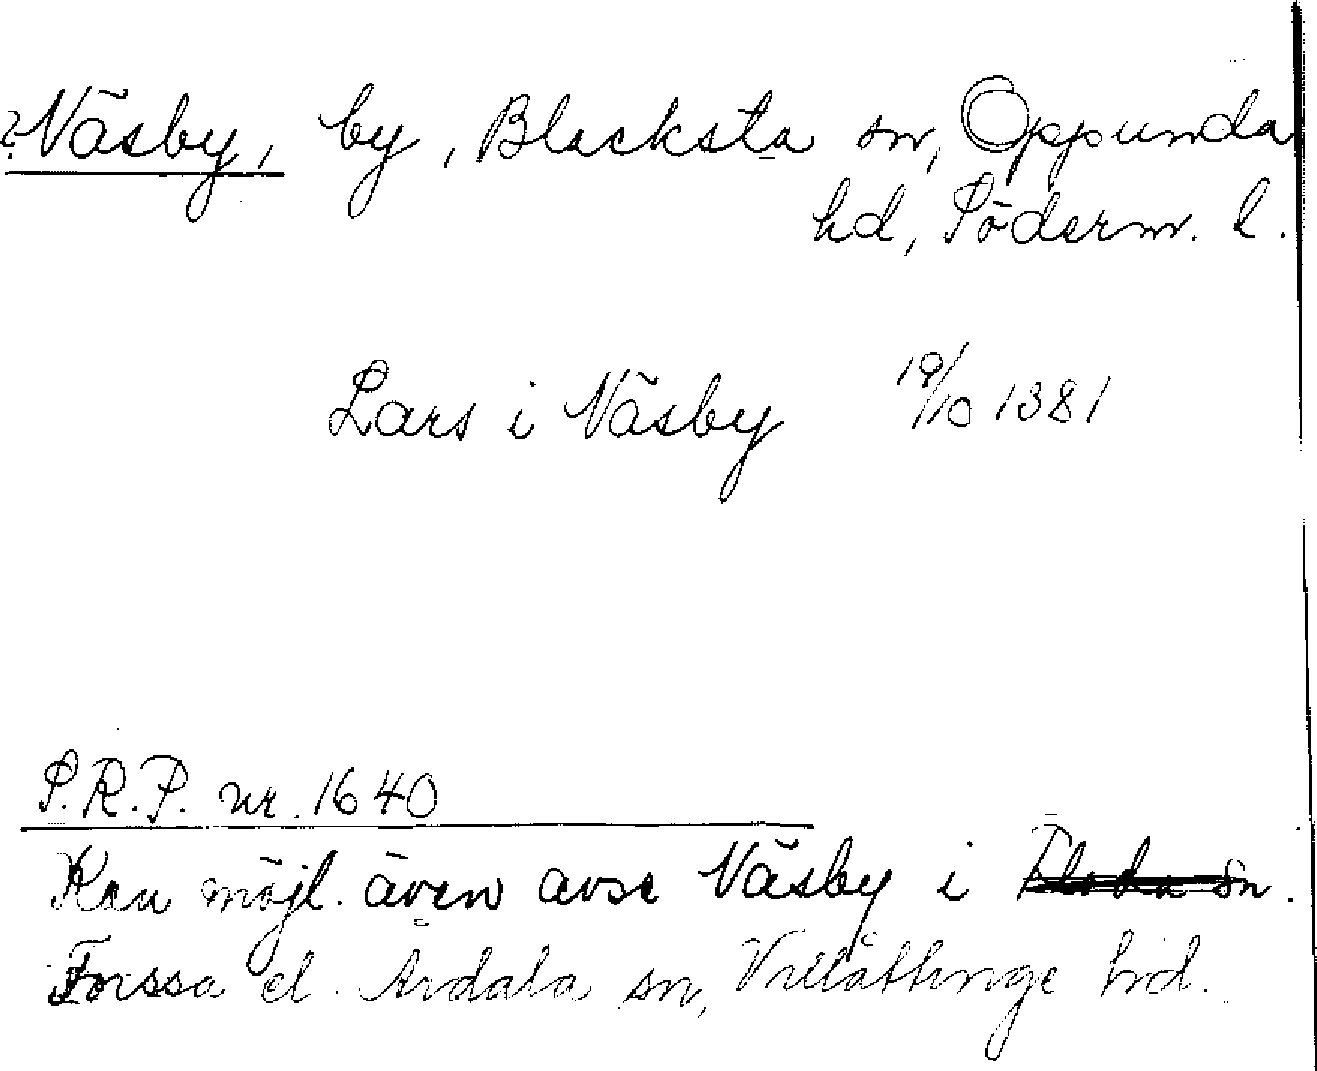 ? Näsby, by, Blacksta sn, Oppunda
hd, Söderm. l.
Lars i Näsby 19/10 1381
S.R.P. nr. 1640
Kan möjl. även avse Näsby i Floda sn.
Forssa el. Årdala sn, Villåttinge hd.